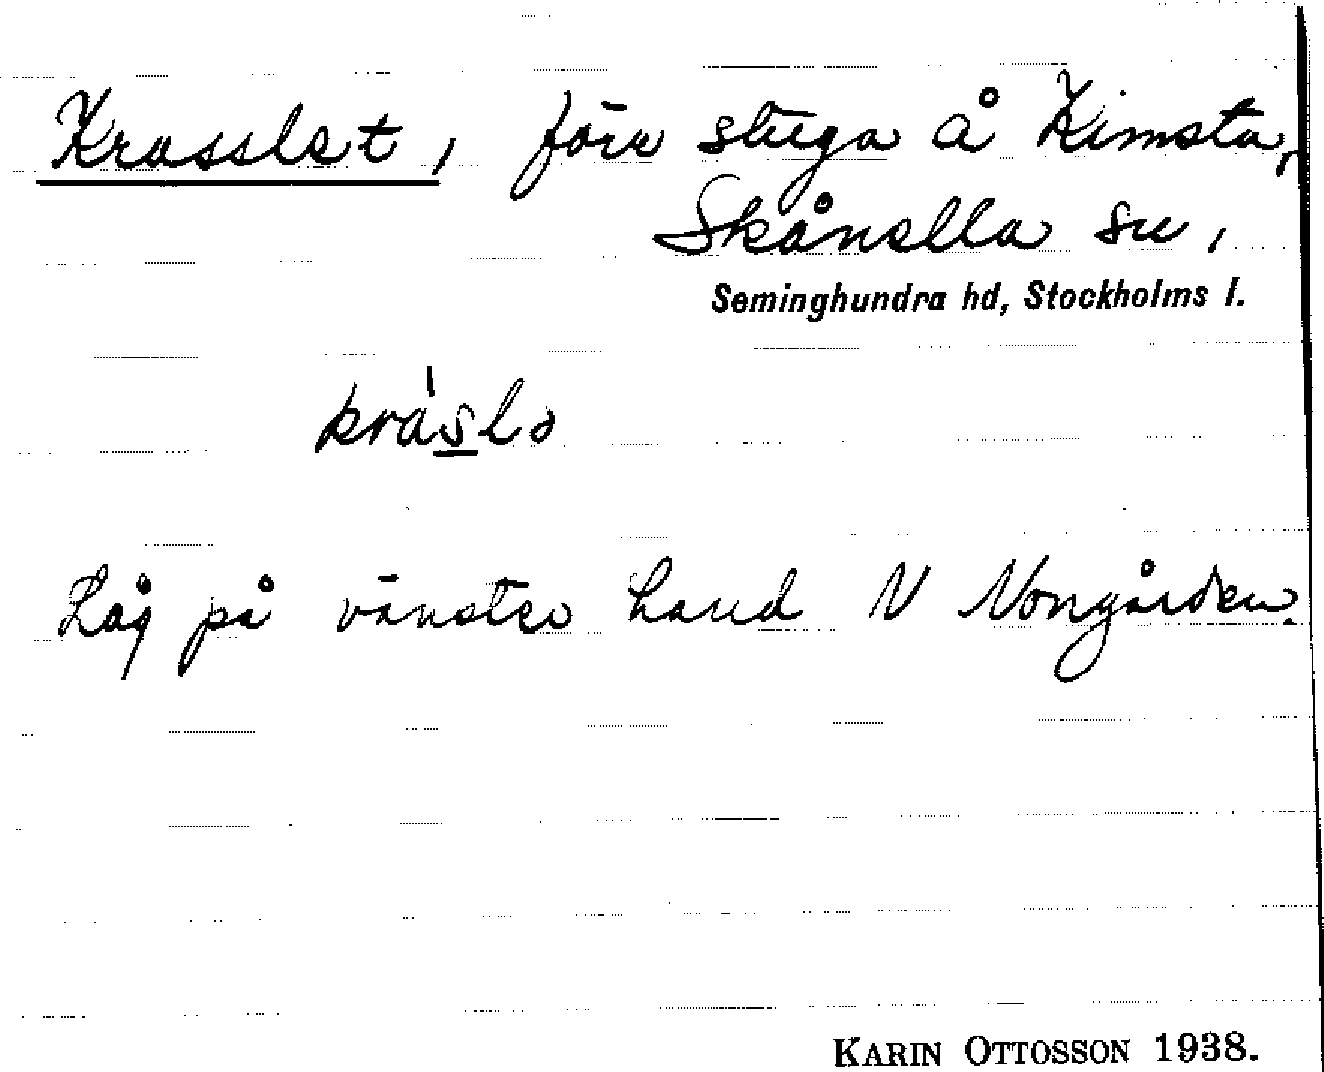 Krasslet, förv stuga å Kimsta,
Skånella sn,
Seminghundra hd, Stockholms l.
kráslə
Låg på vänster hand N Norrgården.
KARIN OTTOSSON 1938.